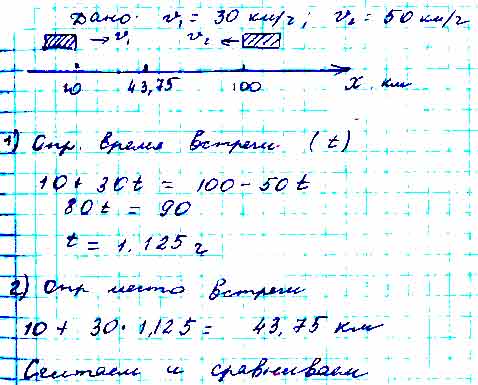 Дано: v₁ = 30 км/г; v₂ = 50 км/г
→v₁ v₂ ←
10 43,75 100 X км
1) Опр. время встречи (t)
10 + 30t = 100 - 50t
80t = 90
t = 1,125 г
2) Опр место встречи
10 + 30 · 1,125 = 43,75 км
Считаем и сравниваем